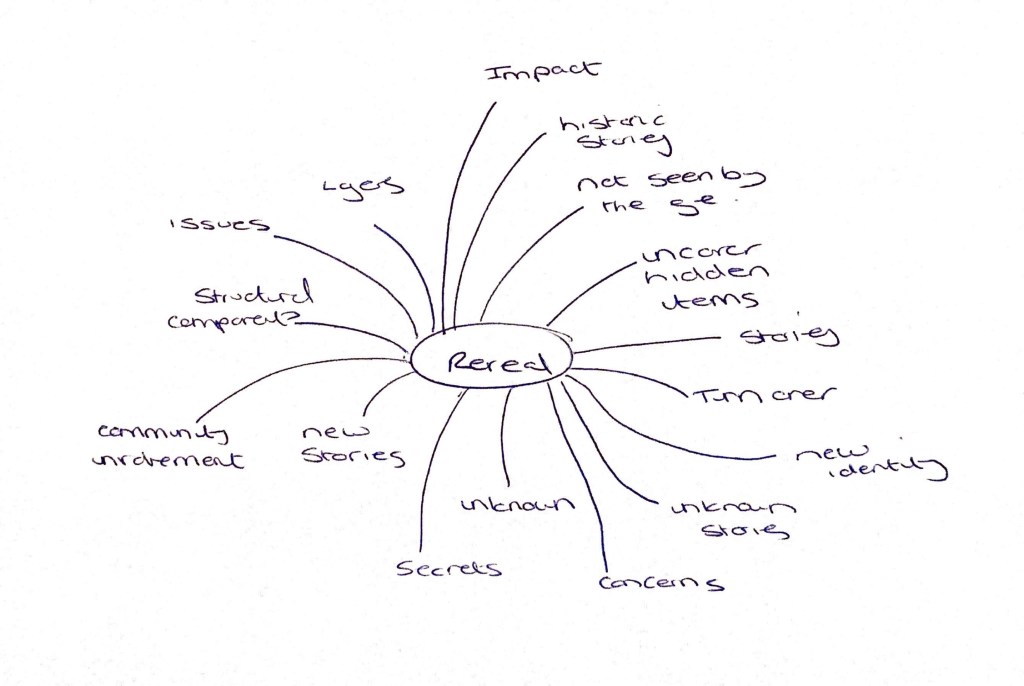 Impact
historic
stories
Layers
not seen by
the eye.
Issues
uncover
hidden
items
Structural
component?
stories
Reveal
Turn over
community
involvement
new
stories
new
identity
unknown
unknown
stories
Secrets
Concerns